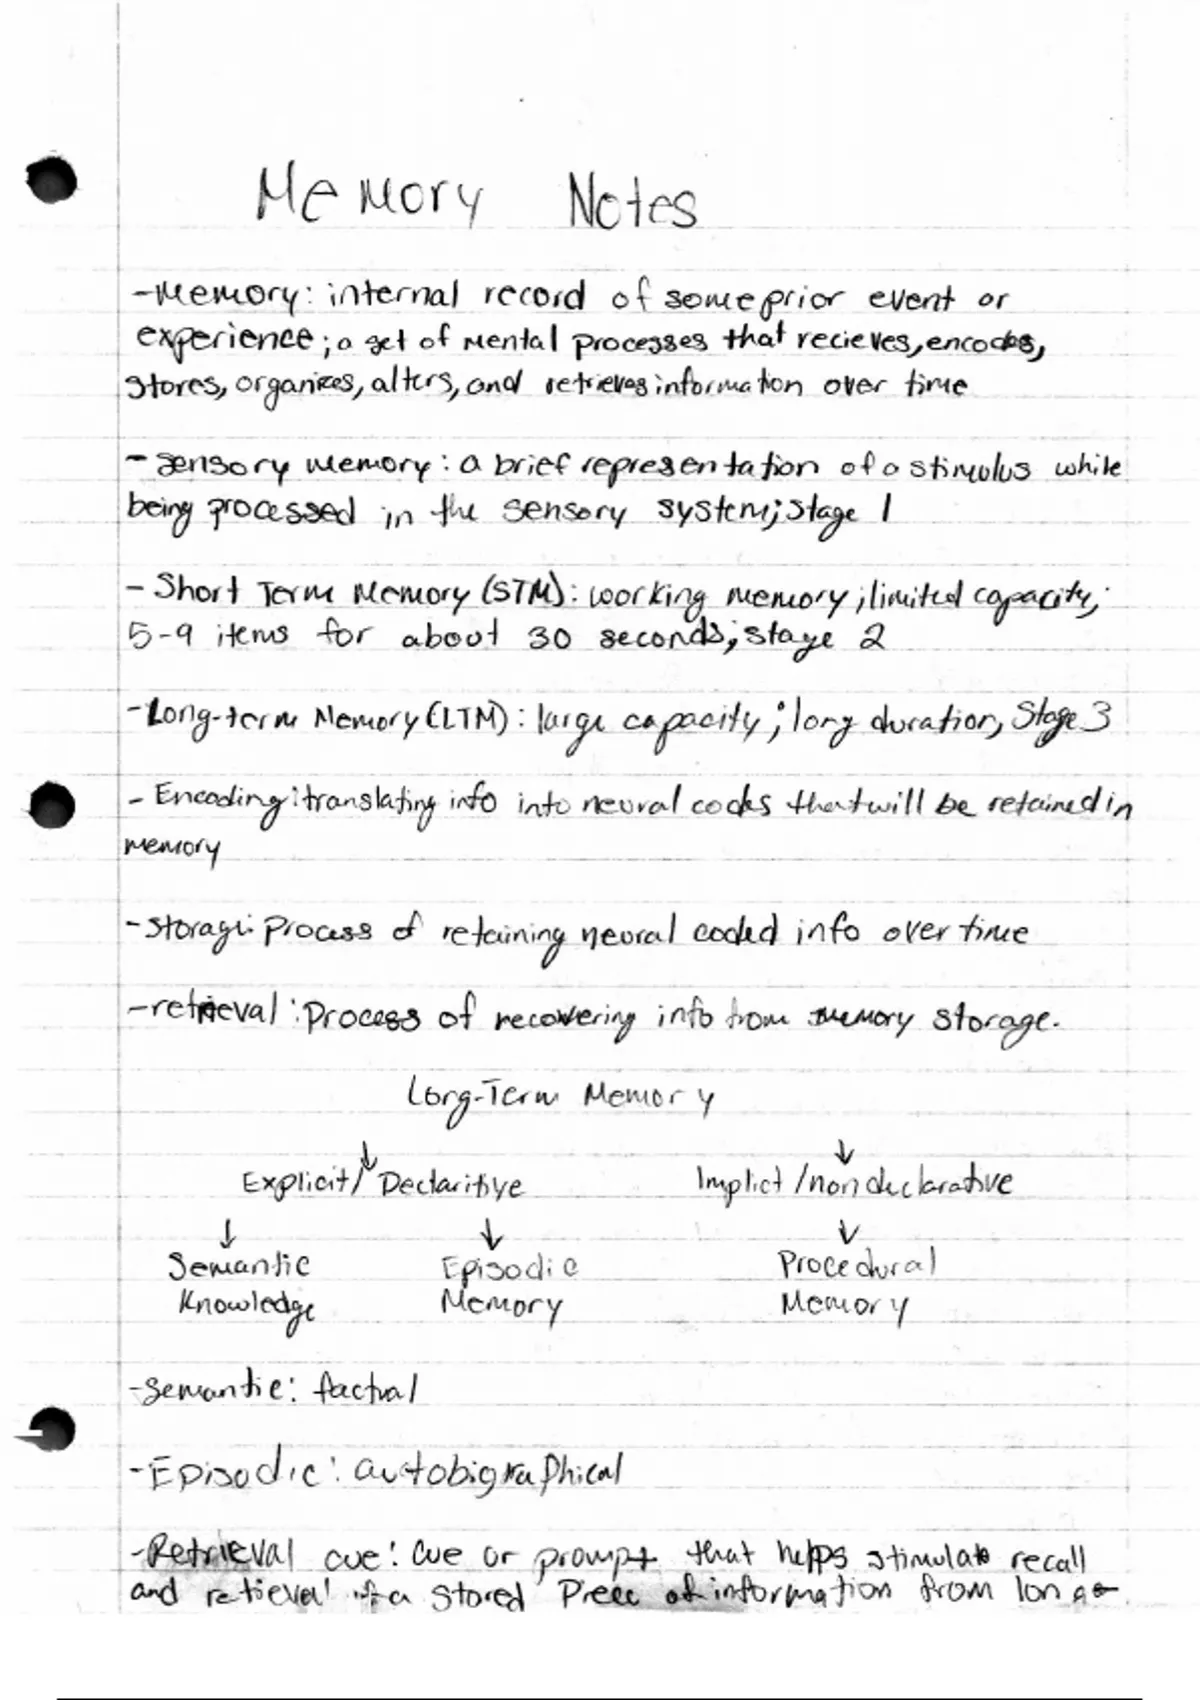 Memory Notes
- Memory: internal record of some prior event or
experience; a set of mental processes that recieves, encodes,
stores, organizes, alters, and retrieves information over time
- Sensory memory: a brief representation of a stimulus while
being processed in the sensory system; stage 1
- Short Term Memory (STM): working memory; limited capacity;
5-9 items for about 30 seconds; stage 2
- Long-term Memory (LTM): large capacity; long duration, Stage 3
- Encoding: translating info into neural codes that will be retained in
memory
- Storage: process of retaining neural coded info over time
- retrieval: Process of recovering info from memory storage.
Long-Term Memory
↓ ↓
Explicit/Declaritive Implict/nondeclarative
↓ ↓ ↓
Semantic Episodic Procedural
Knowledge Memory Memory
- Semantic: factual
- Episodic: autobigraphical
- Retrieval cue: Cue or prompt that helps stimulate recall
and retieval of a stored Piece of information from long